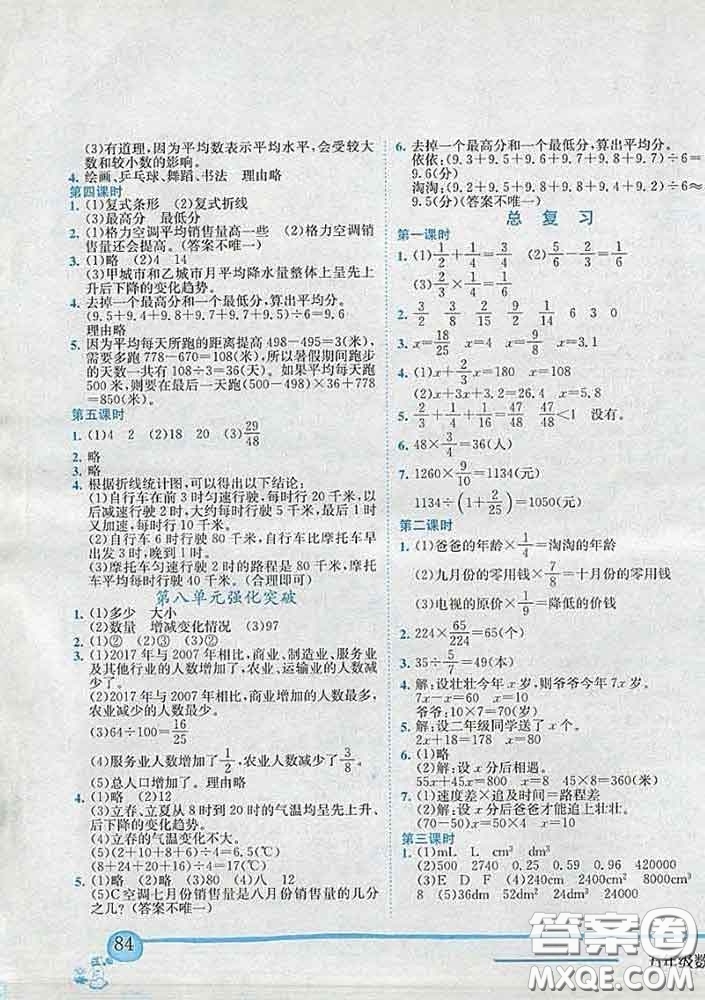 (3)有道理，因为平均数表示平均水平，会受较大
数和较小数的影响。
4. 绘画、乒乓球、舞蹈、书法　理由略
第四课时
1. (1)复式条形　(2)复式折线
(3)最高分　最低分
2. (1)格力空调平均销售量高一些　(2)格力空调销
售量还会提高。(答案不唯一)
3. (1)略　(2)4　14
(3)甲城市和乙城市月平均降水量整体上呈先上
升后下降的变化趋势。
4. 去掉一个最高分和一个最低分，算出平均分。
(9.5+9.4+9.8+9.7+9.7+9.5)÷6=9.6
理由略
5. 因为平均每天所跑的距离提高 498-495=3(米)，
需要多跑 778-670=108(米)，所以暑假期间跑步
的天数一共有 108÷3=36(天)。如果平均每天跑
500 米，则要在最后一天跑(500-498)×36+778
=850(米)。
第五课时
1. (1)4　2　(2)18　20　(3)29/48
2. 略
3. 略
4. 根据折线统计图，可得出以下结论：
(1)自行车在前 3 时匀速行驶，每时行 20 千米，以
后减速行驶 2 时，大约每时行 10 千米，最后 1 时
行驶了 0 千米。
(2)自行车 6 时行驶 80 千米，自行车比摩托车早
出发 3 时，晚到 1 时。
(3)摩托车匀速行驶 2 时的路程是 80 千米，摩托
车平均每时行驶 40 千米。(合理即可)
第八单元强化突破
1. (1)多少　大小
(2)数量　增减变化情况　(3)97
2. (1)②　(2)③　(3)②
3. (1)2017 年与 2007 年相比，商业、制造业、服务业
及其他行业的人数增加了，农业、运输业的人数减
少了。
(2)2017 年与 2007 年相比，商业增加的人数最多，
农业减少的人数最少。
(3)64÷100=16/25
(4)服务业人数增加了1/2，农业人数减少了3/8。
(5)总人口增加了。理由略
4. (1)略　(2)12
(3)立春、立夏从 8 时到 20 时的气温均呈先上升、
后下降的变化趋势。
(4)立春的气温变化不大。
(5)(2+10+8+6)÷4=6.5(℃)
(8+24+20+16)÷4=17(℃)
5. (1)略　(2)略　(3)80　(4)八　12
(5)C 空调七月份销售量是八月份销售量的几分
之几？(答案不唯一)
6. 去掉一个最高分和一个最低分，算出平均分。
依依：(9.3+9.5+9.5+9.8+9.8+9.7)÷6=
9.6(分)
淘淘：(9.2+9.4+9.6+9.7+9.9+9.2)÷6=
9.5(分)(答案不唯一)
总 复 习
第一课时
1. (1)1/2+1/4=3/4　(2)5/6-1/2=1/3
(3)2/3×1/4=1/6
2. 3/3　3/8　2/15　9/2　1/14　6　3　0
3. x=18/25　x=4　x=9/8　x=3.1
4. (1)x-2/5x=180　x=300
(2)x+3x+2.6=15　x=3.1
5. 2/3+1/4+1/16=47/48　47/48<1　没有。
6. 48×3/4=36(人)
7. 1260×9/10=1134(元)
1134÷(1+2/25)=1050(元)
第二课时
1. (1)爸爸的年龄×1/4=淘淘的年龄
(2)九月份的零用钱×7/8=十月份的零用钱
(3)电视的原价×1/9=降低的价钱
2. 224×65/224=65(个)
3. 35÷5/7=49(本)
4. 解：设壮壮今年 x 岁，则爷爷今年 7x 岁。
7x-x=60　x=10
爷爷：10×7=70(岁)
5. 解：设二年级同学送了 x 本。
2x+18=178　x=80
6. (1)略
(2)解：设 x 分后相遇。
55x+45x=800　x=8　45×8=360(米)
7. (1)速度差×追及时间=路程差
(2)解：设 x 分后爸爸才能追上壮壮。
(70-50)x=50×4　x=10
第三课时
1. (1)mL　L　cm³　dm³
(2)500　2740　0.25　0.59　0.96　420000
(3)E　D　F　(4)240cm　2400cm²　8000cm³
8　(5)36dm　52dm²　24dm³　24dm³
84
答案圈
MXQE.COM
五年级数